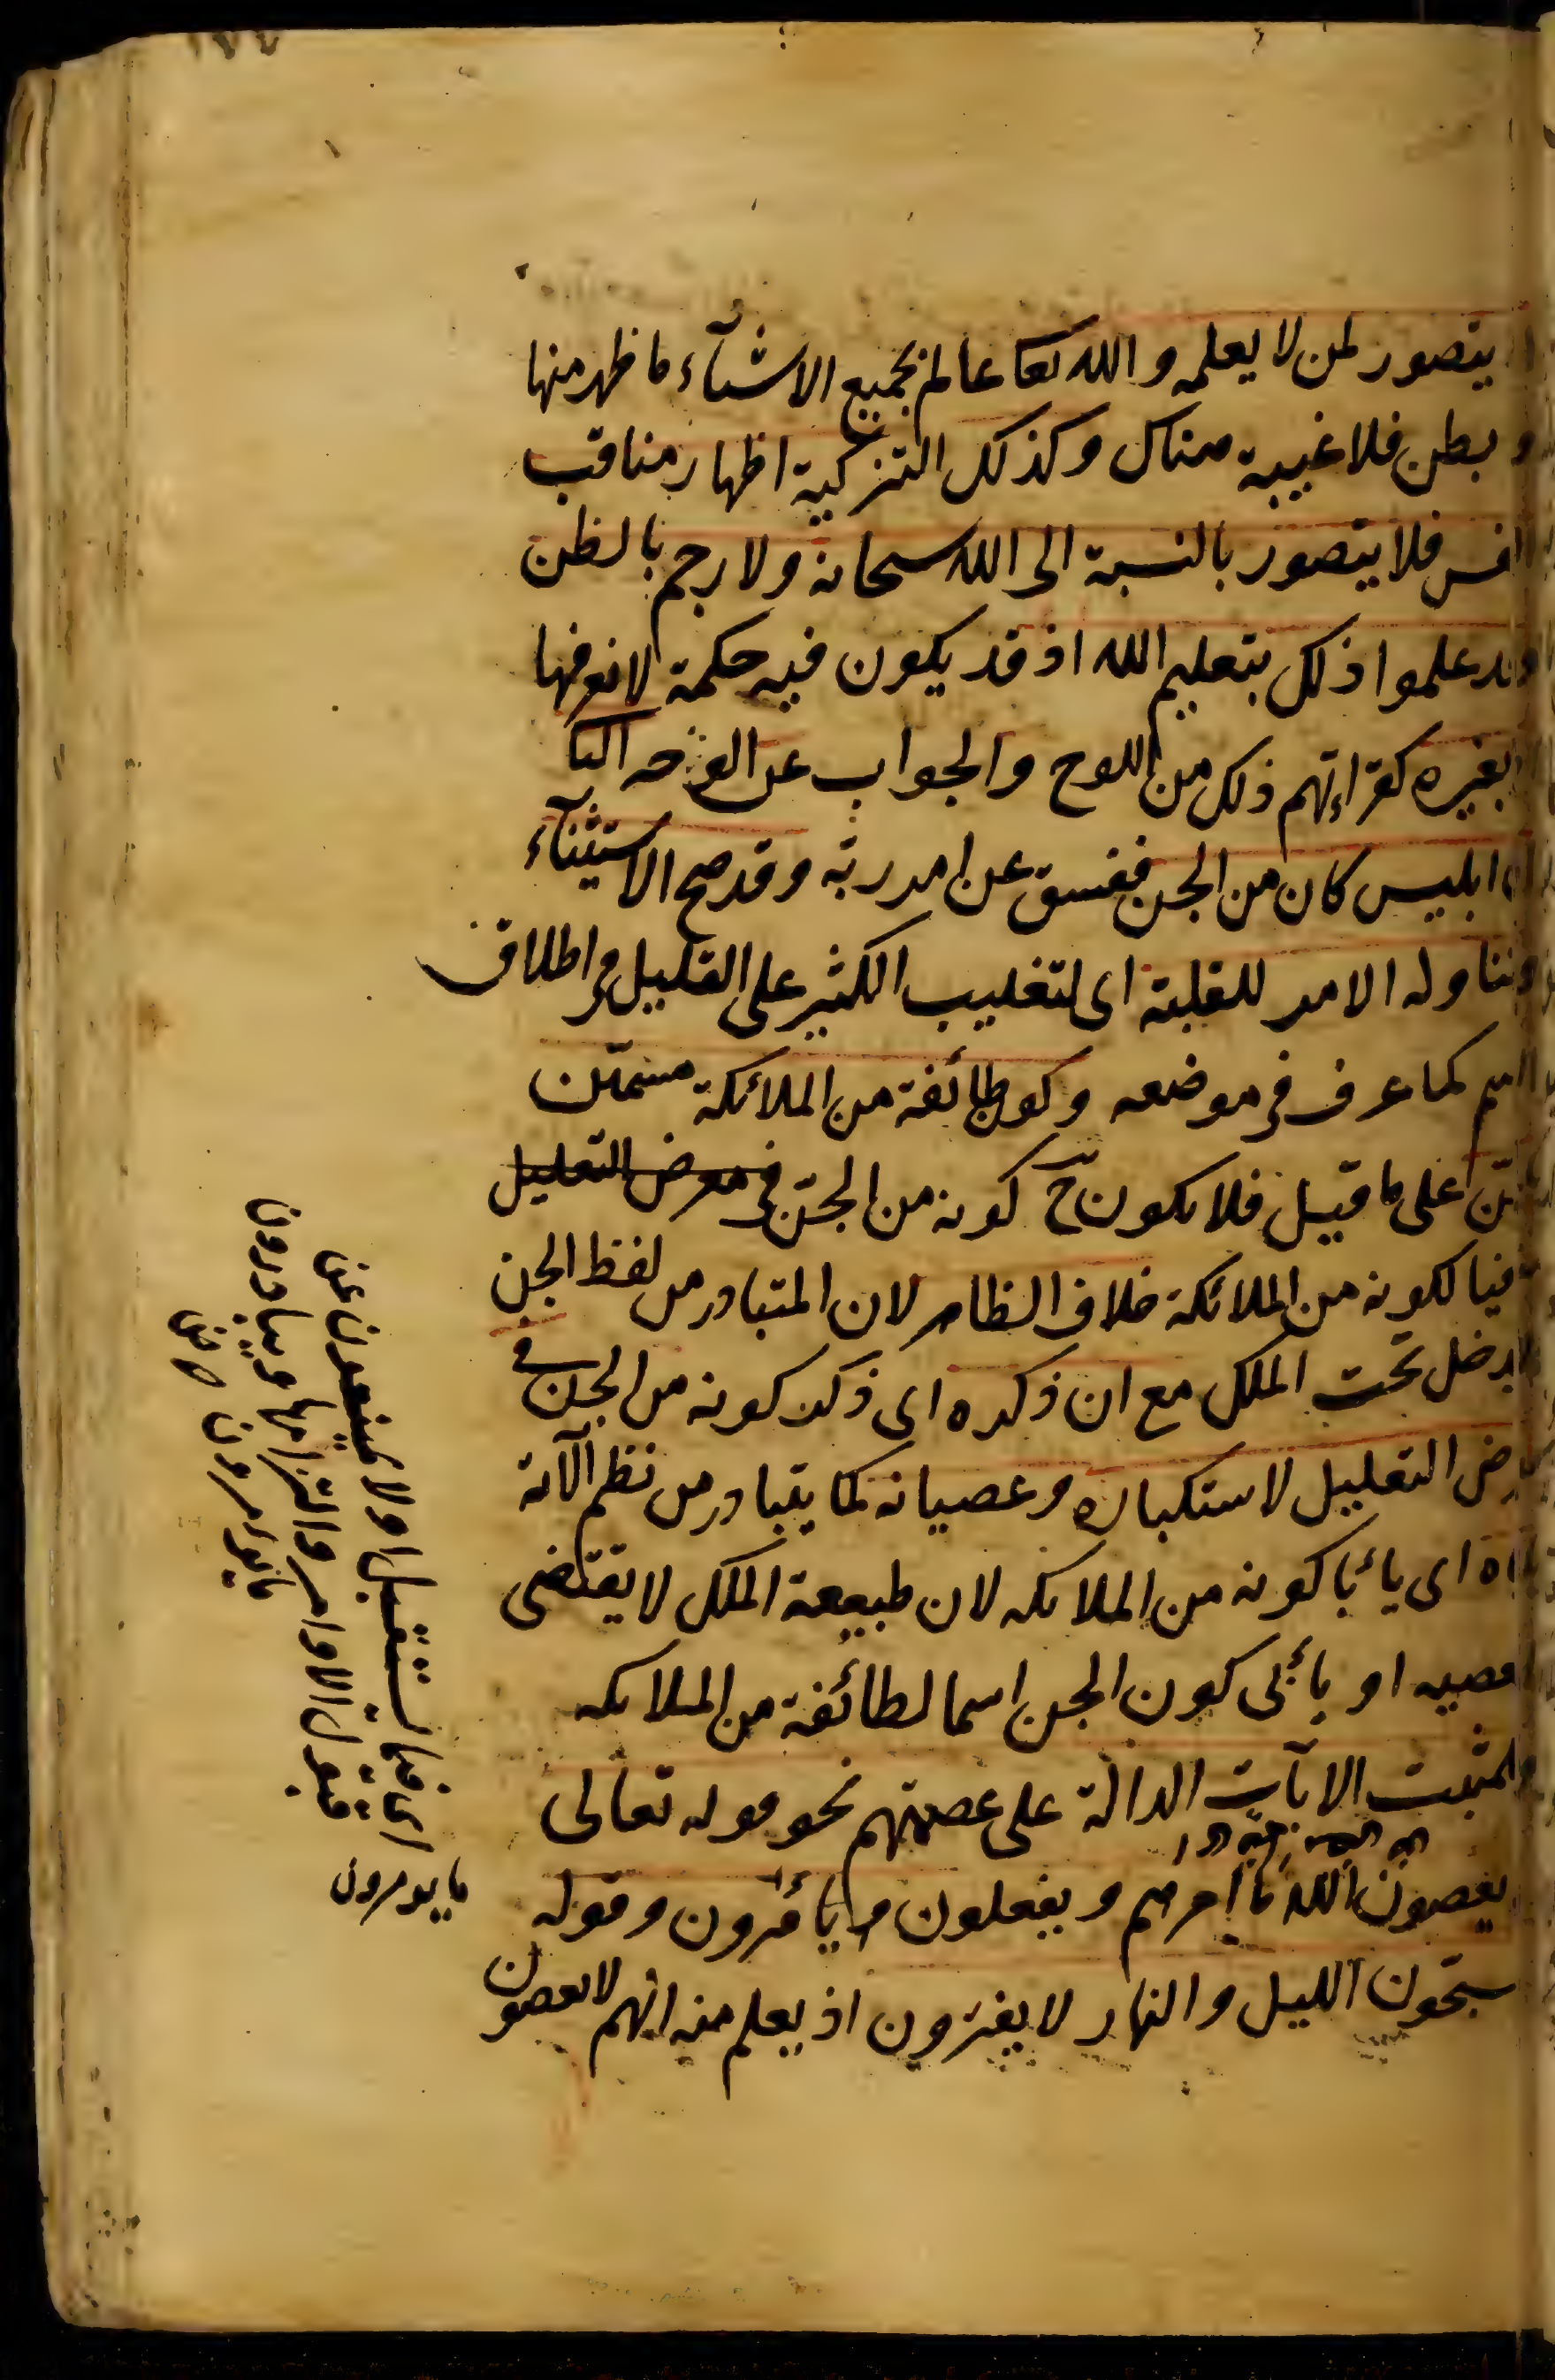 يتصور لمن لا يعلمه والله تعا عالم بجميع الاشيآء ما ظهر منها
و بطن فلا غيبة هناك وكذلك التزكية اظهار مناقب
فلا يتصور بالنسبة الى الله سبحانه ولا رجم بالظن
وقد علموا ذلك بتعليم الله اذ قد يكون فيه حكمة لا نعرفها
بغيره كقراءتهم ذلك من اللوح والجواب عن الوجه
ان ابليس كان من الجن ففسق عن امر ربه وقد صح الاستثنآء
وتناوله الامر للغلبة اى لتغليب الكثير على القليل فى اطلاق
كما عرف فى موضعه وكون طائفة من الملائكة مسمّين
على ما قيل فلا يكون ح كونه من الجنّ فى معرض التعليل
لكونه من الملائكة خلاف الظاهر لان المتبادر من لفظ الجن
يدخل تحت الملك مع ان ذكره اى ذكر كونه من الجن فى
التعليل لاستكباره وعصيانه كما يتبادر من نظم الآية
اى يأبا كونه من الملائكه لان طبيعة الملك لا يقتضى
او يأبى كون الجن اسما لطائفة من الملائكه
الآيات الدالة على عصمتهم نحو قوله تعالى
يعصون الله ما امرهم ويفعلون ما يأمرون وقوله
يسبّحون الليل والنهار لا يفترون اذ يعلم منه انهم لا يعصون
اى فيما يستقبل او لا يمتنعون عن
قبول الاوامر والتزامها ويبادرون
ما يؤمرون